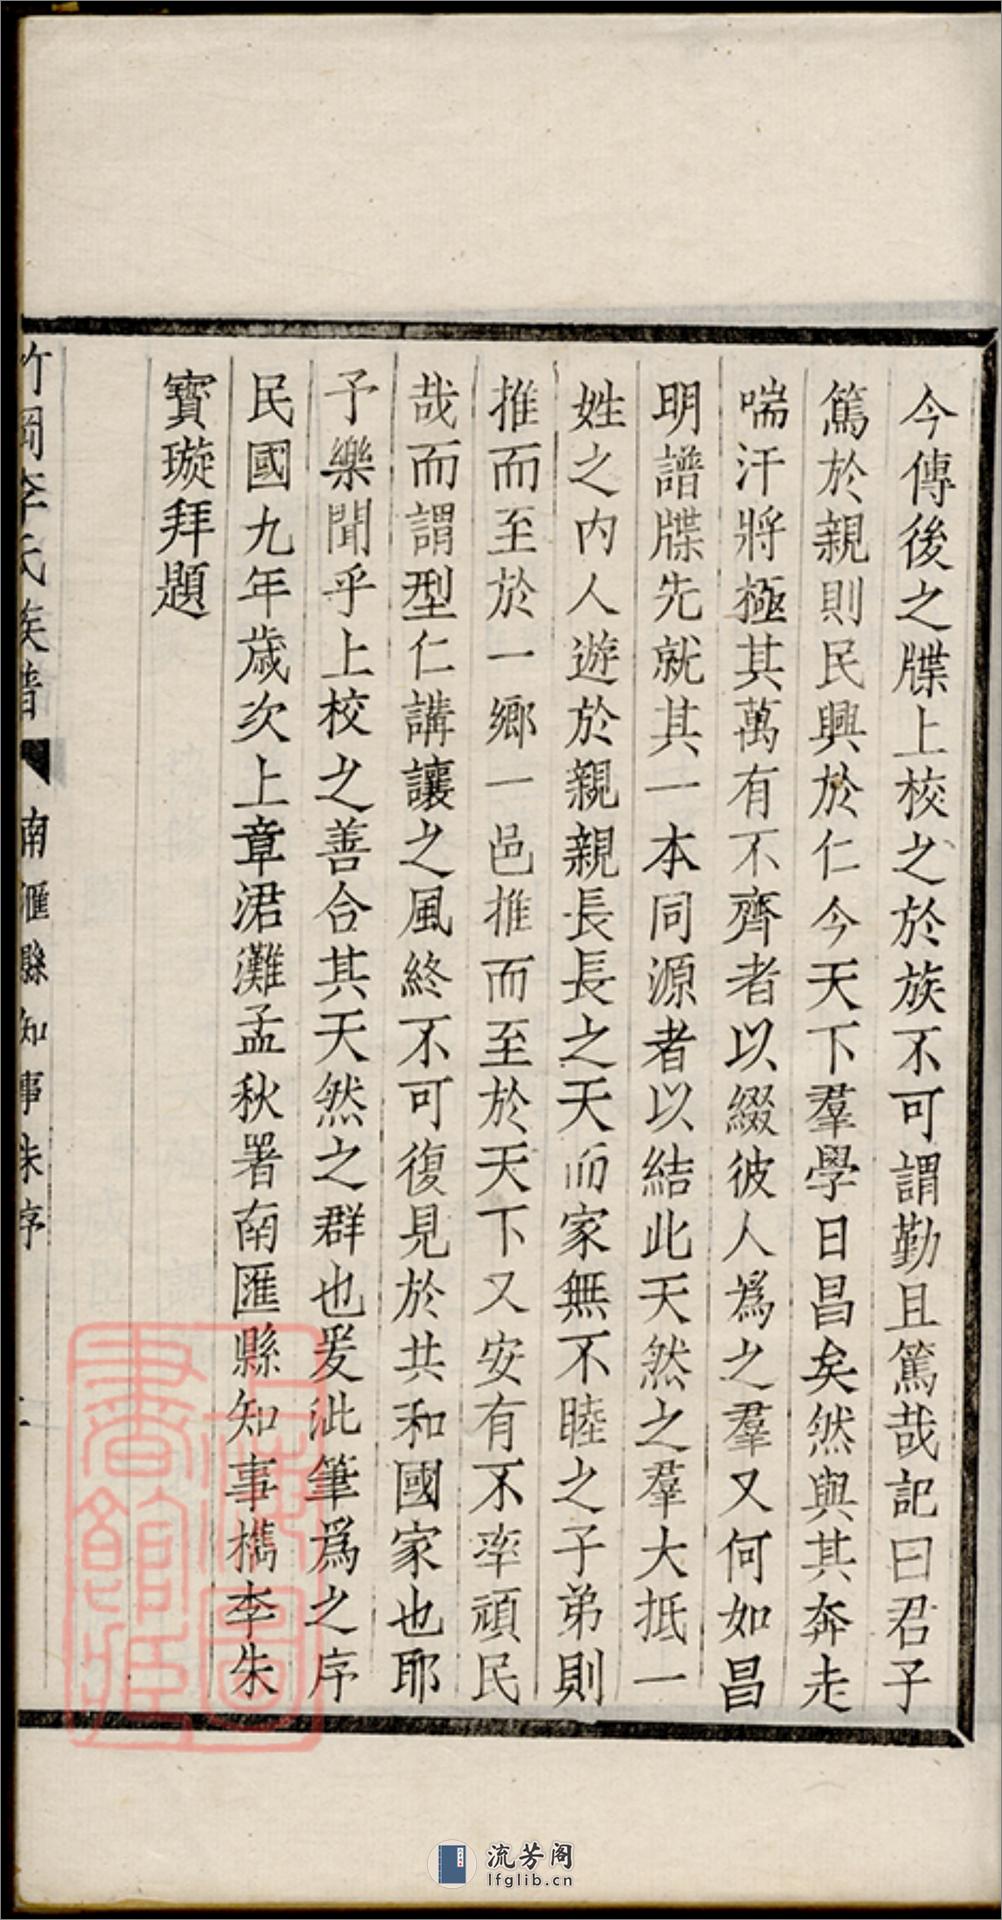 今傳後之牒上校之於族不可謂勤且篤哉記曰君子
篤於親則民興於仁今天下羣學日昌矣然與其奔走
喘汗將極其萬有不齊者以綴彼人爲之羣又何如昌
明譜牒先就其一本同源者以結此天然之羣大抵一
姓之內人遊於親親長長之天而家無不睦之子弟則
推而至於一鄉一邑推而至於天下又安有不率頑民
哉而謂型仁講讓之風終不可復見於共和國家也耶
予樂聞乎上校之善合其天然之群也爰泚筆爲之序
民國九年歲次上章涒灘孟秋署南匯縣知事檇李朱
寳璇拜題
竹岡李氏族譜 南匯縣知事朱序
上海圖書館藏
流芳阁
lfglib.cn